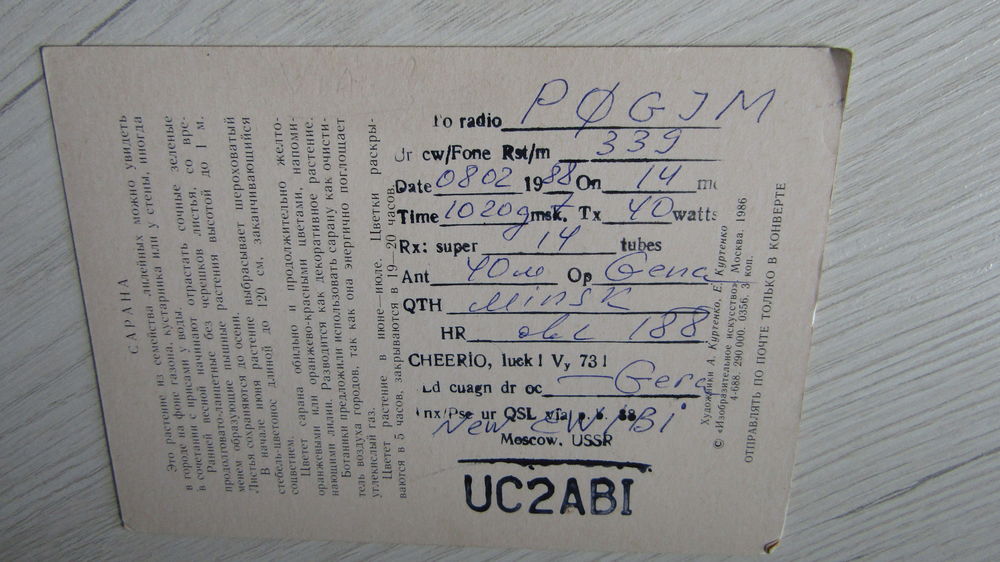 To radio PØGJM
Ur cw/Fone Rst/m 339
Date 0802 1988 On 14 mc
Time 1020 gmsk. Tx 40 watts
Rx: super 14 tubes
Ant 40m Op Gena
QTH Minsk
HR obl 188
CHEERIO, luck! Vy 73!
Ld cuagn dr oc — Gena
Tnx/Pse ur QSL via p. b. 88,
New
Moscow, USSR
UC2ABI
САРАНА
Это растение из семейства лилейных можно увидеть
в городе на фоне газона, кустарника или у стены, иногда
в сочетании с ирисами у воды.
Ранней весной начинают отрастать сочные зеленые
продолговато-ланцетные без черешков листья, со вре-
менем образующие пышные растения высотой до 1 м.
Листья сохраняются до осени.
В начале июня растение выбрасывает шероховатый
стебель-цветонос длиной до 120 см, заканчивающийся
соцветием.
Цветет сарана обильно и продолжительно желто-
оранжевыми или оранжево-красными цветами, напоми-
нающими лилии. Разводится как декоративное растение.
Ботаники предложили использовать сарану как очисти-
тель воздуха городов, так как она энергично поглощает
углекислый газ.
Цветет растение в июне—июле. Цветки раскры-
ваются в 5 часов, закрываются в 19—20 часов.
Художники А. Куртенко, Е. Куртенко
© «Изобразительное искусство». Москва. 1986
4-688. 290.000. 0356. 3 коп.
ОТПРАВЛЯТЬ ПО ПОЧТЕ ТОЛЬКО В КОНВЕРТЕ